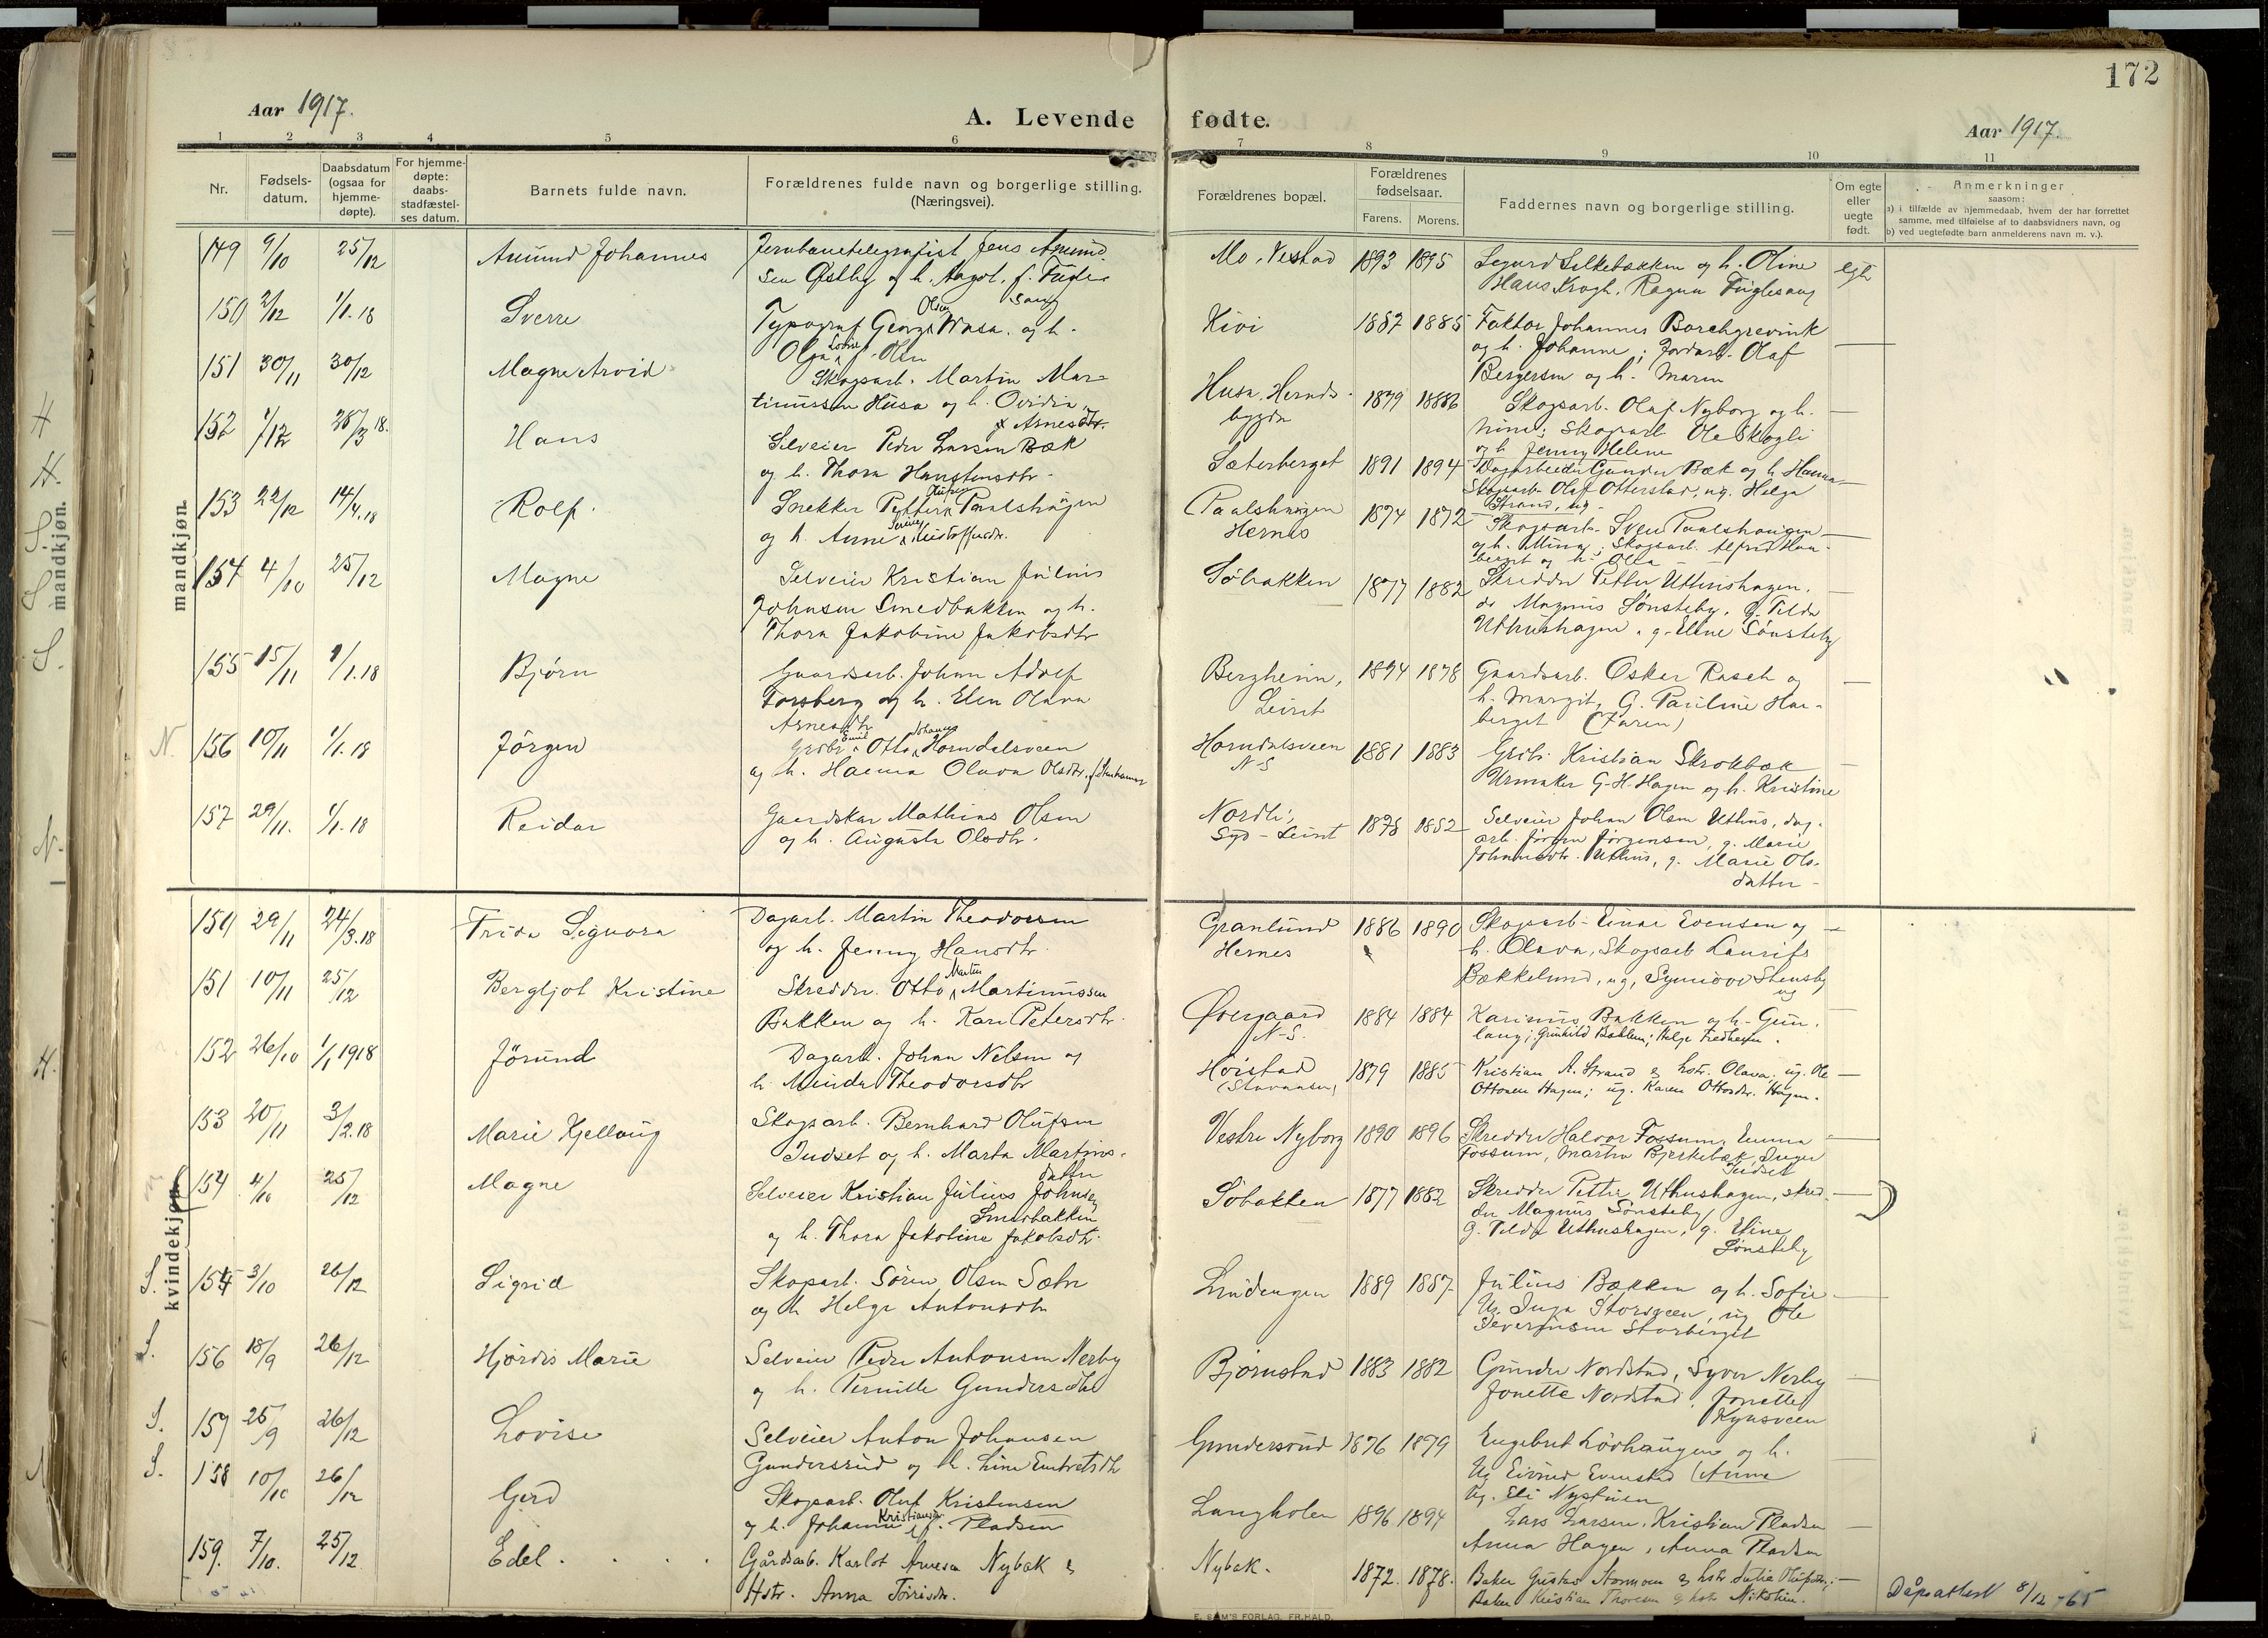 172
Aar 1917.
A. Levende fødte.
Aar 1917.
1 2 3 4 5 6 7 8 9 10 11
Nr.
Fødsels-
datum.
Daabsdatum
(ogsaa for
hjemme-
døpte).
For hjemme-
døpte:
daabs-
stadfæstel-
ses datum.
Barnets fulde navn.
Forældrenes fulde navn og borgerlige stilling.
(Næringsvei).
Forældrenes bopæl.
Forældrenes
fødselsaar.
Farens. Morens.
Faddernes navn og borgerlige stilling.
Om egte
eller
uegte
født.
Anmerkninger
saasom:
a) i tilfælde av hjemmedaab, hvem der har forrettet
samme, med tilføielse af to daabsvidners navn, og
b) ved uegtefødte barn anmelderens navn m. v.).
mandkjøn.
149 9/10 25/12 Amund Johannes
Jernbanetelegrafist Jens Amund-
sen Østby og h. Aagot, f. Fugle-
sang
Mo, Vestad 1893 1895
Sigurd Silkebækken og h. Oline
Hans Krogh, Ragna Fuglesang
egte
150 2/12 1/1.18 Sverre
Typograf Georg Olsen Wasa og h.
Olga Lovise f. Olsen
Kivi 1887 1885
Faktor Johannes Borchgrevink
og h. Johanne; Jordarb. Olaf
Bergersen og h. Maren
151 30/11 30/12 Magne Arvid
Skogsarb. Martin Mar-
tinussen Husa og h. Ovidia
Asnesdtr.
Husa, Hernds-
bygda 1879 1886
Skogsarb. Olaf Nyborg og h.
Nina; Skogsarb. Ole Skogli
og h. Jenny Helene
152 1/12 28/3 18. Hans
Selveier Peder Larsen Bæk
og h. Thora Haagensdtr.
Sæterberget 1891 1894
Dagarbeider Gunder Bæk og h. Hanna
Skogsarb. Olaf Otterstad, ug. Helga
Strand, ug.
153 22/12 14/4.18 Rolf.
Snekker Petter Olufsen Paalshaugen
og h. Anne Kristoffersdtr.
Paalshaugen
Hernes 1874 1872
Skogsarb. Sven Paalshaugen
og h. Mina; Skogsarb. Alfred Haa-
berget og h. Olla
154 4/10 25/12 Magne
Selveier Kristian Julius
Johnsen Smedbakken og h.
Thora Jakobine Jakobsdtr
Søbakken 1877 1882
Skredder Petter Uthushagen,
do Magnus Sønsteby, g. Tilda
Uthushagen, g. Eline Sønsteby
155 15/11 1/1.18 Bjørn
Gaardsarb. Johan Adolf
Forsberg og h. Elen Olava
Asnesdtr
Bergheim,
Leiret 1894 1878
Gaardsarb. Oskar Rasch og
h. Margit, G. Pauline Haa-
berget (Faren)
N. 156 10/11 1/1.18 Jörgen
Grdbr. Otto Emil Johannes Horndalsveen
og h. Hanna Olava Olsdtr. f. Stenhammer
Horndalsveen
N-S 1881 1883
Grdb. Kristian Skrokbæk
Urmaker G. H. Hagen og h. Kristine
157 29/11. 1/1.18 Reidar
Gaardskar Mathias Olsen
og h. Augusta Olsdtr.
Nordli,
Syd-Leiret 1878 1882
Selveier Johan Olsen Uthus, dag-
arb. Jörgen Jörgensen, g. Marie
Johannesdtr. Uthus, g. Marie Ols-
datter
kvindekjøn.
150 29/11 24/3.18 Frida Signora
Dagarb. Martin Theodorsen
og h. Jenny Hansdtr.
Granlund
Hernes 1886 1890
Skogsarb. Einar Evensen og
h. Olava, Skogsarb. Laurits
Bækkelund, ug, Synnöve Stensby
ug
151 10/11 25/12 Bergljot Kristine
Skredder Otto Martin Martinussen
Bakken og h. Kari Petersdtr.
Övergaard
N-S. 1884 1884
Karinus Bakken og h. Gun-
laug; Gunhild Bakken; Helge Fredheim.
152 26/10 1/1 1918 Jörund
Dagarb. Johan Nelsen og
h. Minda Theodorsdtr
Høistad
(Stavaasen) 1879 1885
Kristian A. Strand & hstr. Olava; ug. Ole
Ottosen Hagen; ug. Karen Ottosdtr. Hagen.
153 20/11 3/2.18 Marie Kjellaug
Skogsarb. Bernhard Olufsen
Judset og h. Marta Martins-
datter
Vestre Nyborg 1890 1896
Skredder Halvor Fossum, Emma
Fossum, Martha Bjerkebæk, Inger
Judset
154 4/10 25/12 Magne
Selveier Kristian Julius Johnsen
Smedbakken
og h. Thora Jakobine Jakobsdtr.
Søbakken 1877 1882
Skredder Petter Uthushagen, skred-
der Magnus Sønsteby,
g. Tilda Uthushagen, g. Eline
Sønsteby
S. 155 3/10 26/12 Sigrid
Skogsarb. Sören Olsen Sætre
og h. Helga Antonsdtr
Lindengen 1889 1887
Julius Bakken og h. Sofie
Ug. Inga Storsveen, ug Ole
Severinsen Storberget
S. 156 18/9 26/12 Hjördis Marie
Selveier Peder Antonsen Nerby
og h. Pernille Gundersdtr
Björnstad 1883 1882
Gunder Nordstad, Syver Nerby
Jonette Nordstad, Jonette
Kynsveen
S. 157 25/9 26/12 Lovise
Selveier Anton Johansen
Gundersrud og h. Line Embretsdtr
Gundersrud 1876 1879
Engebret Lövhaugen og h.
Ug. Eivind Evenstad (Anna
Ug. Eli Nystuen
S. 158 10/10 26/12 Gerd
Skogsarb. Oluf Kristensen
og h. Johanne Kristiansdtr f. Pladsen
Langholen 1896 1894
Lars Larsen, Kristian Pladsen
Anna Hagen, Anna Pladsen
159. 7/10. 25/12 Edel.
Gårdsarb. Karlot Arnesen Nybak &
Hstr. Anna Torisdtr.
Nybak. 1872. 1878.
Baker Gustav Stormoen & hstr. Julie Olufsdtr.;
Baker Kristian Thoresen & hstr. Mikoline.
Dåpsattest 8/12 -65
E. SEM'S FORLAG, FR.HALD.